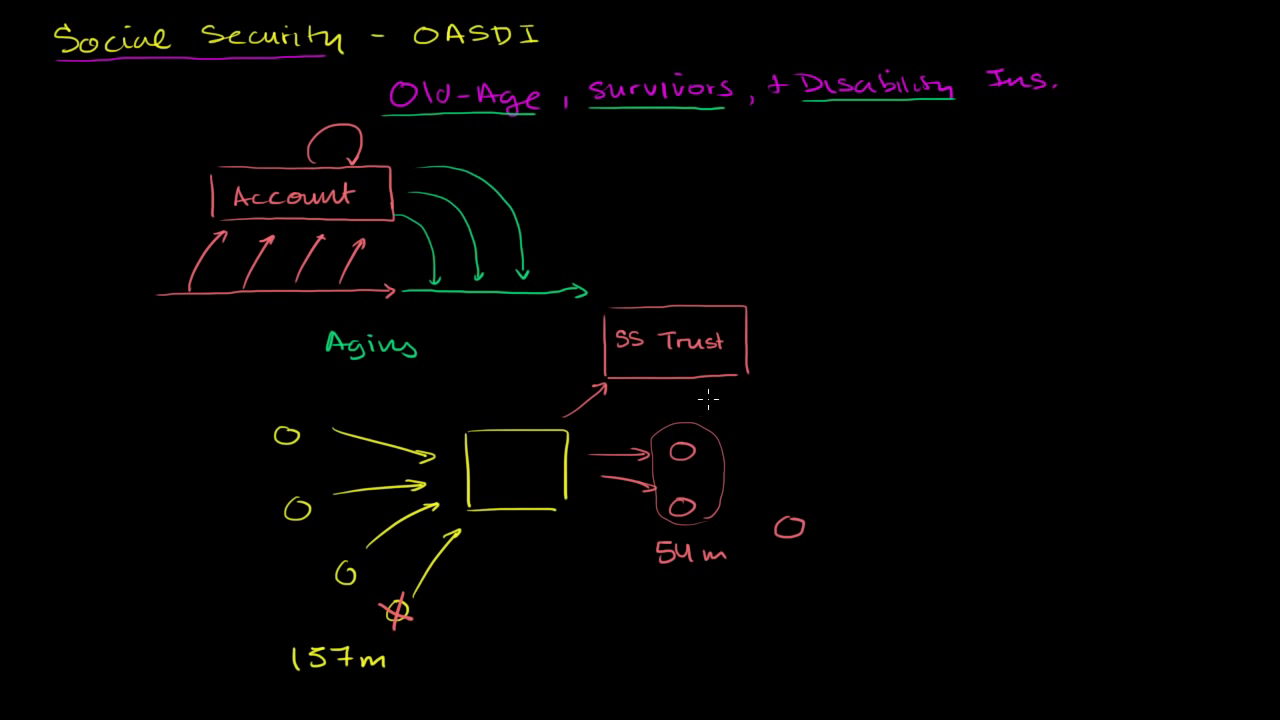 Social Security - OASDI
Old-Age, survivors, + Disability Ins.
Account
Aging
SS Trust
54m
157m